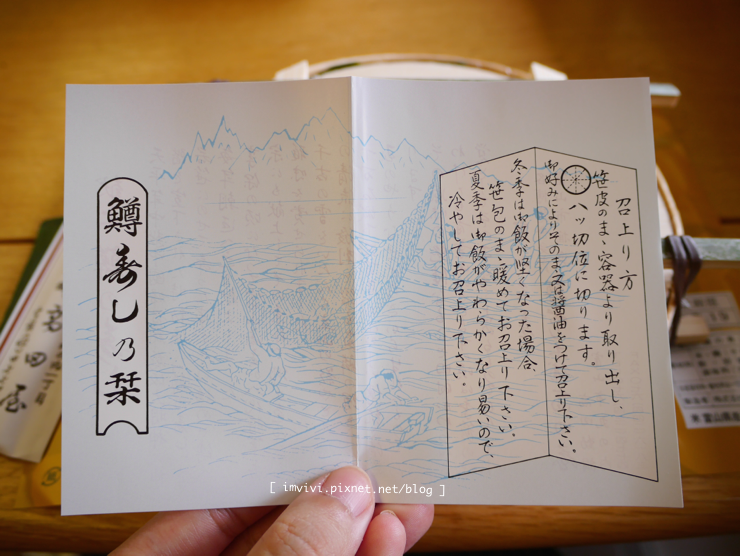 召上り方
笹皮のまゝ容器より取り出し、
八ッ切位に切ります。
御好みによりそのまゝ又は醤油をつけて召上り下さい。
冬季は御飯が堅くなった場合
笹包のまゝ暖めてお召上り下さい。
夏季は御飯がやわらかくなり易いので、
冷やしてお召上り下さい。
鱒寿し乃栞
田屋
富山県
[ imvivi.pixnet.net/blog ]